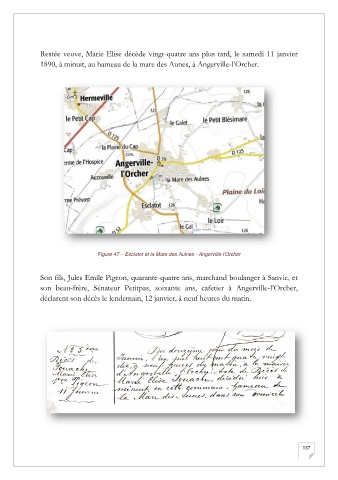 Restée veuve, Marie Elise décède vingt-quatre ans plus tard, le samedi 11 janvier
1890, à minuit, au hameau de la mare des Aunes, à Angerville-l'Orcher.
Hermeville
126
le Petit Cap
le Galet
le Petit Blésimare
D 125
la Plaine du Cap
Cap
D 125
erme de l'Hospice
Angerville-
l'Orcher
la Mare des Aulnes
Auzouville
Plaine du Loi
me Prévost
Esclatot
126
le Loir
le Gal
126
D 52
Figure 47 – Esclatot et la Mare des Aulnes - Angerville-l'Orcher
Son fils, Jules Emile Pigeon, quarante-quatre ans, marchand boulanger à Sanvic, et
son beau-frère, Sénateur Petitpas, soixante ans, cafetier à Angerville-l'Orcher,
déclarent son décès le lendemain, 12 janvier, à neuf heures du matin.
N° 5ème
Décès de
Jouache
Marie Elise
Vve Pigeon
11 Janvier
L'an douzième jour du mois de
Janvier, l'an mil huit cent quatre vingt
dix à neuf heures du matin, à la mairie
d'Angerville l'Orcher, Acte de Décès de
Marie Elise Jouache, décédée hier à
minuit en cette commune, hameau de
la Mare des Aunes, dans son domicile
137